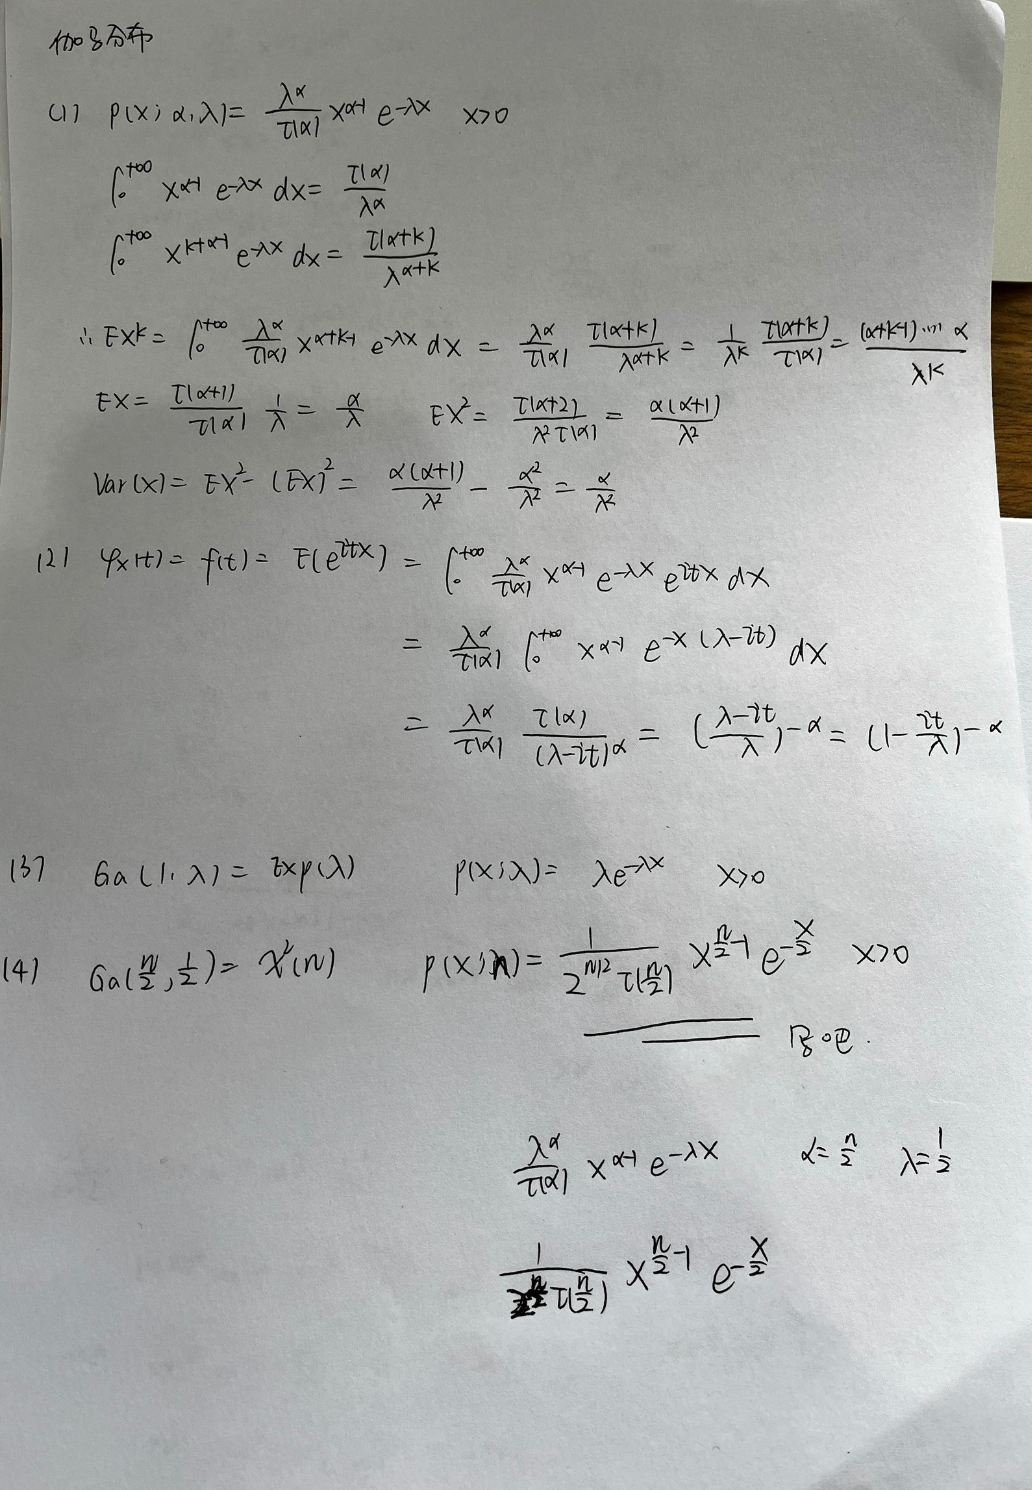 伽马分布
(1) p(x; α, λ) = \frac{λ^α}{Γ(α)} x^{α-1} e^{-λx} x>0
∫_0^{+∞} x^{α-1} e^{-λx} dx = \frac{Γ(α)}{λ^α}
∫_0^{+∞} x^{k+α-1} e^{-λx} dx = \frac{Γ(α+k)}{λ^{α+k}}
∴ EX^k = ∫_0^{+∞} \frac{λ^α}{Γ(α)} x^{α+k-1} e^{-λx} dx = \frac{λ^α}{Γ(α)} \frac{Γ(α+k)}{λ^{α+k}} = \frac{1}{λ^k} \frac{Γ(α+k)}{Γ(α)} = \frac{(α+k-1)…α}{λ^k}
EX = \frac{Γ(α+1)}{Γ(α)} \frac{1}{λ} = \frac{α}{λ} EX^2 = \frac{Γ(α+2)}{λ^2 Γ(α)} = \frac{α(α+1)}{λ^2}
Var(x) = EX^2 - (EX)^2 = \frac{α(α+1)}{λ^2} - \frac{α^2}{λ^2} = \frac{α}{λ^2}
(2) φ_x(t) = f(t) = E(e^{itx}) = ∫_0^{+∞} \frac{λ^α}{Γ(α)} x^{α-1} e^{-λx} e^{itx} dx
= \frac{λ^α}{Γ(α)} ∫_0^{+∞} x^{α-1} e^{-x(λ-it)} dx
= \frac{λ^α}{Γ(α)} \frac{Γ(α)}{(λ-it)^α} = (\frac{λ-it}{λ})^{-α} = (1-\frac{it}{λ})^{-α}
(3) Ga(1, λ) = Exp(λ) p(x; λ) = λe^{-λx} x>0
(4) Ga(\frac{n}{2}, \frac{1}{2}) = χ^2(n) p(x; n) = \frac{1}{2^{n/2} Γ(\frac{n}{2})} x^{\frac{n}{2}-1} e^{-\frac{x}{2}} x>0
\frac{λ^α}{Γ(α)} x^{α-1} e^{-λx} α=\frac{n}{2} λ=\frac{1}{2}
\frac{1}{2^{\frac{n}{2}} Γ(\frac{n}{2})} x^{\frac{n}{2}-1} e^{-\frac{x}{2}}